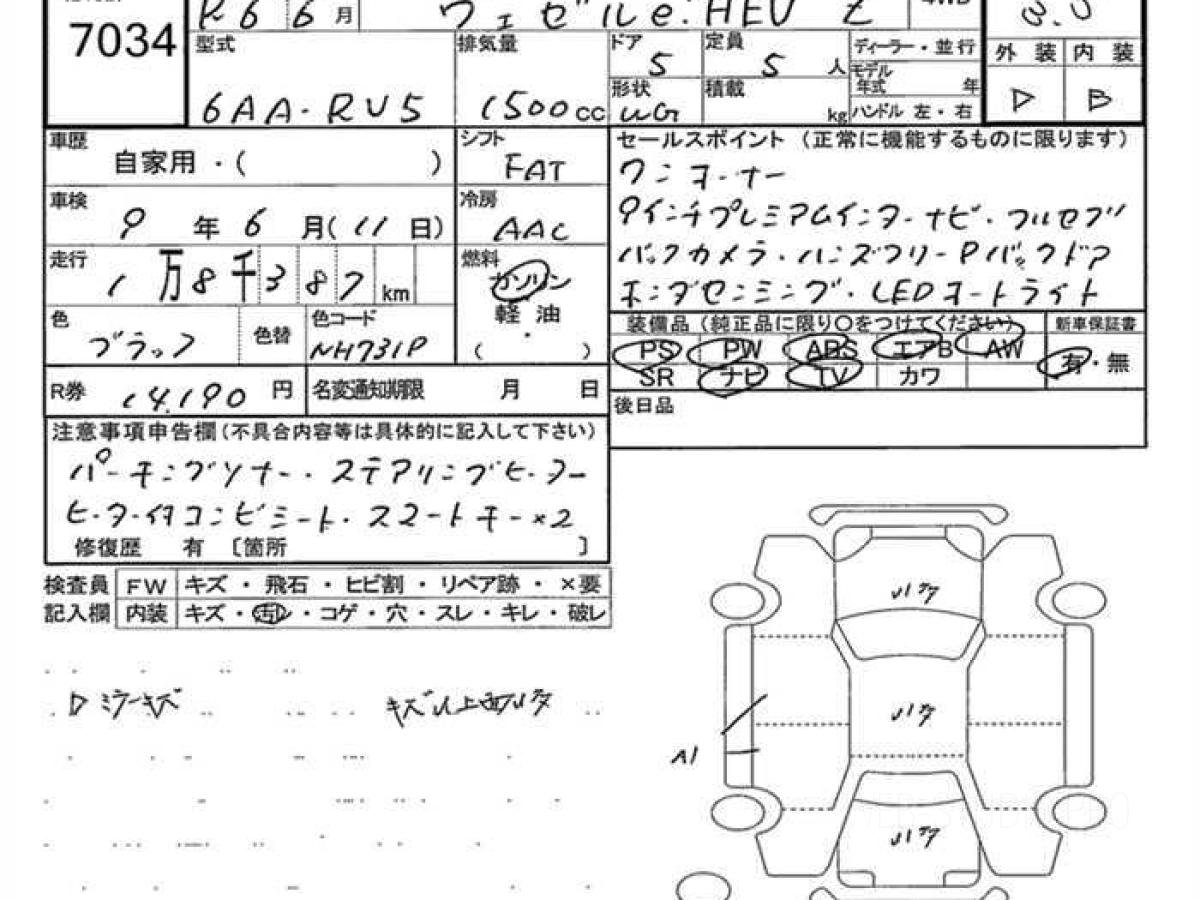 R6 6月 ヴェゼル e:HEV Z 4WD
7034
型式 6AA-RU5
排気量 1500cc
ドア 5
定員 5人
形状 WG
積載 kg
ディーラー・並行
モデル年式 年
ハンドル 左・右
外装 内装
D B
車歴 自家用・( )
シフト FAT
車検 9年6月(11日)
冷房 AAC
走行 1万8千387km
燃料 ガソリン
軽油
( ・ )
色 ブラック
色替
色コード NH731P
R券 14,190円
名変通知期限 月 日
セールスポイント(正常に機能するものに限ります)
ワンオーナー
9インチプレミアムインターナビ・フルセグ
バックカメラ・ハンズフリーPバックドア
ホンダセンシング・LEDオートライト
装備品(純正品に限り〇をつけてください)
新車保証書
PS PW ABS エアB AW
有・無
SR ナビ TV カワ
後日品
注意事項申告欄(不具合内容等は具体的に記入して下さい)
パーキングソナー・ステアリングヒーター
ヒーター付コンビシート・スマートキー×2
修復歴 有 〔箇所 〕
検査員 FW キズ・飛石・ヒビ割・リペア跡・×要
記入欄 内装 キズ・汚レ・コゲ・穴・スレ・キレ・破レ
Dミラーキズ
A1